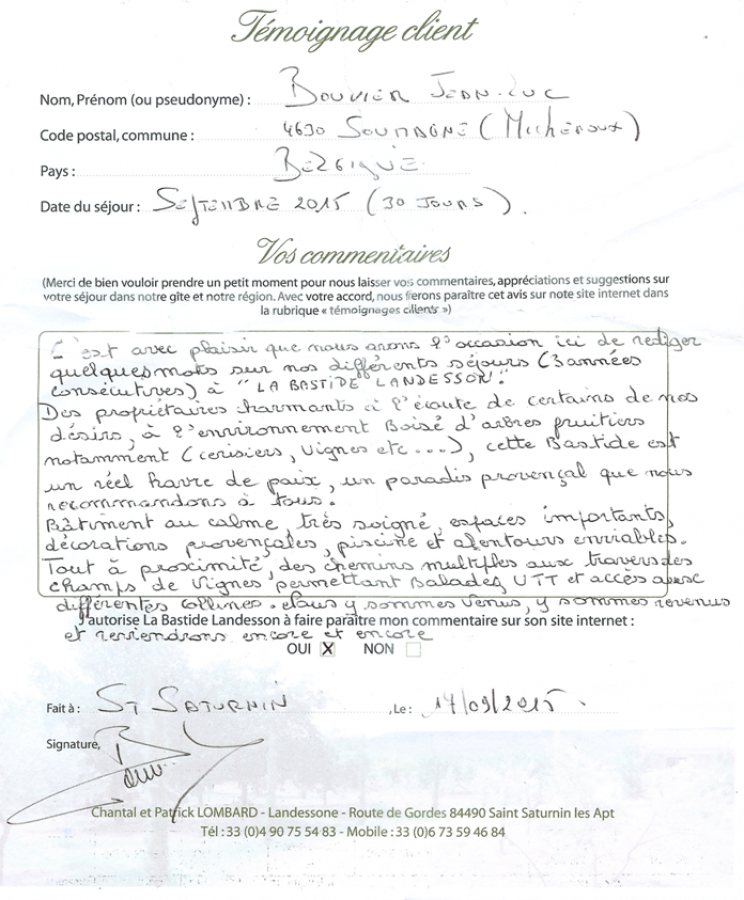 Témoignage client
Nom, Prénom (ou pseudonyme) : Bouvier Jean-Luc
Code postal, commune : 4630 Soumagne (Micheroux)
Pays : Belgique
Date du séjour : Septembre 2015 (30 jours).
Vos commentaires
(Merci de bien vouloir prendre un petit moment pour nous laisser vos commentaires, appréciations et suggestions sur
votre séjour dans notre gîte et notre région. Avec votre accord, nous ferons paraître cet avis sur note site internet dans
la rubrique « témoignages clients »)
C'est avec plaisir que nous avons l'occasion ici de rediger
quelques mots sur nos différents séjours (3 années
consécutives) à "LA BASTIDE LANDESSON".
Des propriétaires charmants à l'écoute de certains de nos
désirs, à l'environnement Boisé d'arbres fruitiers
notamment (cerisiers, vignes etc....), cette Bastide est
un réel havre de paix, un paradis provençal que nous
recommandons à tous.
Bâtiment au calme, très soigné, espaces importants,
décorations provençales, piscine et alentours enviables.
Tout à proximité, des chemins multiples aux travers des
champs de Vignes permettant Balades, VTT et accès avec
différentes collines. Nous y sommes venus, y sommes revenus
J'autorise La Bastide Landesson à faire paraître mon commentaire sur son site internet :
et reviendrons encore et encore
OUI X NON
Fait à : St Saturnin ,Le : 17/09/2015.
Signature,
Chantal et Patrick LOMBARD - Landessone - Route de Gordes 84490 Saint Saturnin les Apt
Tél : 33 (0)4 90 75 54 83 - Mobile : 33 (0)6 73 59 46 84